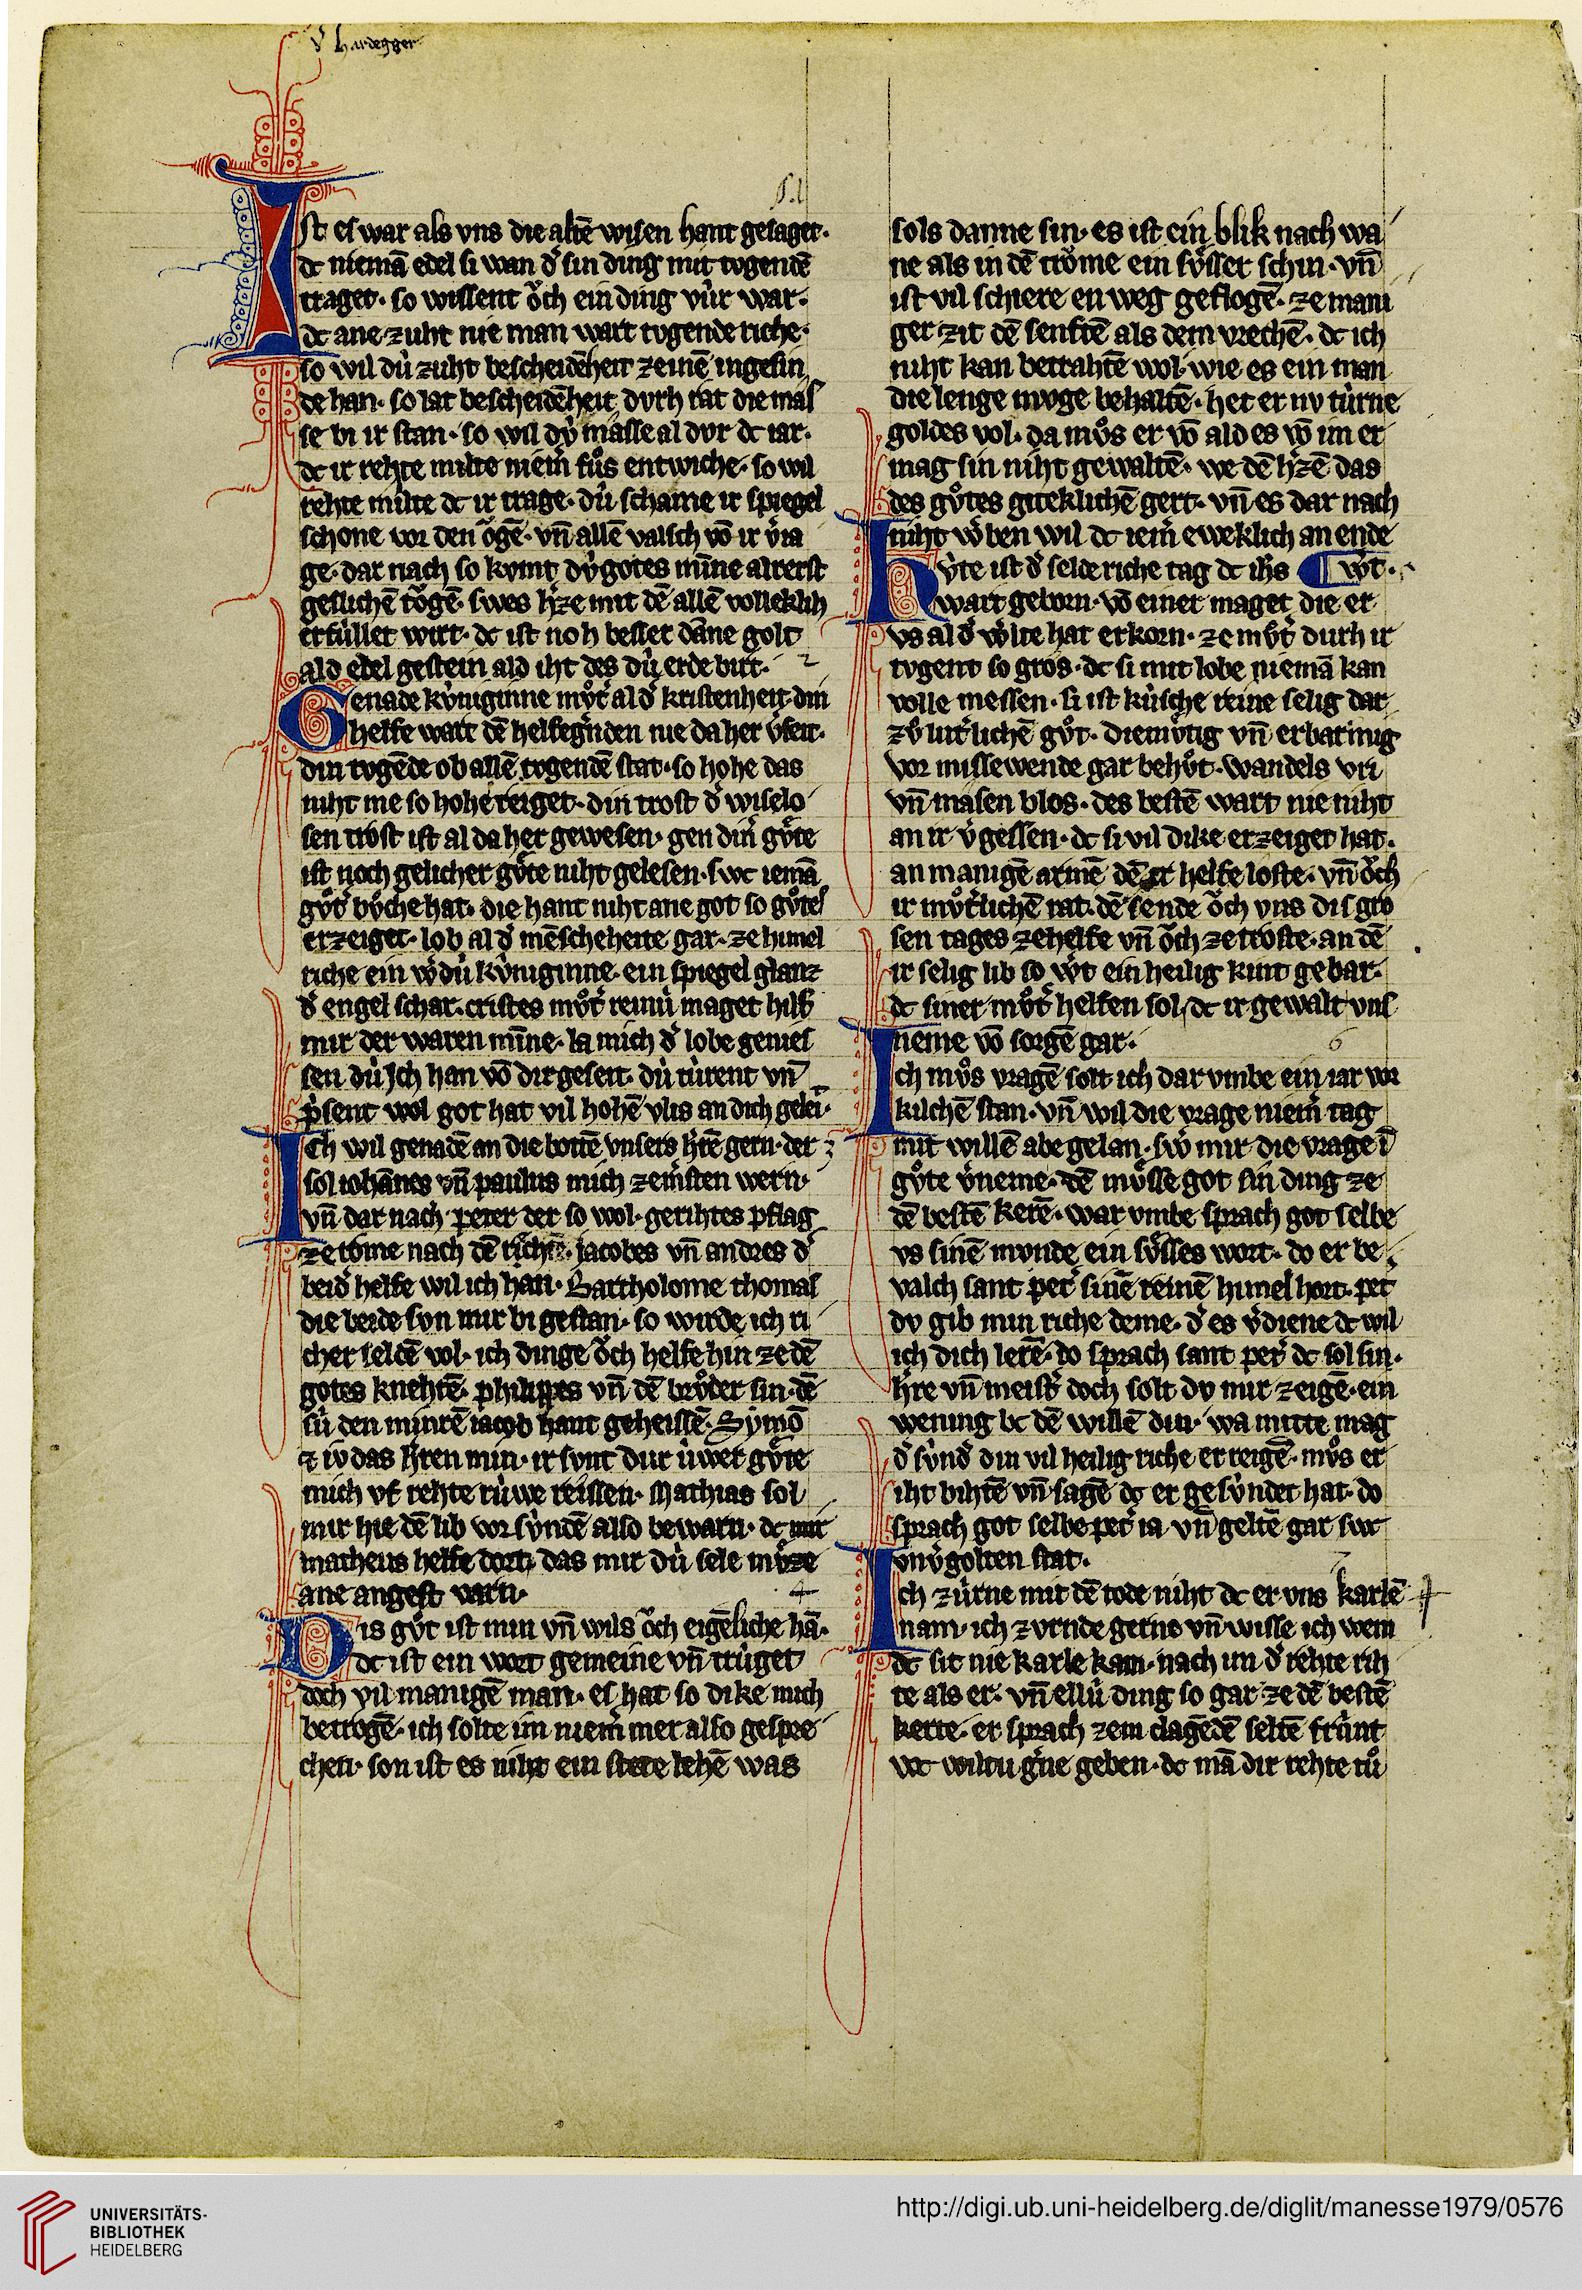 v̾ hardegger
s. l
Ist es war als vns die altē wisen hant gesaget·
dc niemā edel si wan d̾ sin ding mit tvgendē
traget· so wissent oͮch ein ding vúr war·
dc ane zuht nie man wart tvgende riche·
so wil dú zuht bescheidēheit zeinē ingesin
de han· so lat bescheidēheit dvrh rat die mas
se bi ir stan· so wil dv́ masse al dvr dc iar·
dc ir rehte milte niem̾ fuͦs entwiche· so wil
rehte milte dc ir trage· dú schame ir spiegel
schone vor den oͮgē· vn̄ allē valsch vō ir v̾ia
ge· dar nach so kvmt dv́ gotes minne alrerst
geslichē toͮgē· swes h̾ze mit dē allē volleklih
erfúllet wirt· dc ist noh besser dāne golt
ald edel gestein ald iht des dú erde birt· 2
Genade kv́niginne mvͦt̾ al d̾ kristenheit· din
helfe wart dē helfeg̾nden nie da her v̾seit·
din tvgēde ob allē tvgendē stat· so hohe das
niht me so hohe reiget· din trost d̾ wiselo
sen trost ist al da her gewesen· gen din̾ gvͤte
ist noch gelicher gvͤte niht gelesen· swc iemā
gvͦt̾ bvͦche hat· die hant niht ane got so gvͦtes
erzeiget· lob al d̾ mēscheheite gar· ze himel
riche ein w̾dú kv́niginne· ein spiegel glanz
d̾ engel schar· cristes mvͦt̾ reinú maget hilf
mir der waren minne· la mich d̾ lobe genies
sen dú Ich han vō dir geseit· dú túrent vn̄
p̾sent wol got hat vil hohē vlis an dich geleit·
Ich wil genadē an die bottē vnsers h̾rē gern· der 3
sol iohānes vn̄ paulus mich zem̾sten wern·
vn̄ dar nach peter der so wol· gerihtes pflag
ze rome nach dē riche· Jacobes vn̄ andres d̾
beid̾ helfe wil ich han· Bartholome thomas
die beide svn mir bi gestan· so wirde ich ri
cher seldē vol· ich dinge oͮch helfe hin ze dē
gotes knehtē· philippes vn̄ dē brvͦder sin· dē
sú den minrē iacob hant geheissē· Symō
⁊ iv̄das h̾ren min· ir svnt dur úwer gvͤte
mich vf rehte rúwe reissen· Mathias sol
mir hie dē lib vor sv́ndē also bewarn· dc mir
matheus helfe dort· das mir dú sele mvͤze
ane angest varn· 4
Dis gvͦt ist min vn̄ wils oͮch eigēliche hā·
dc ist ein wort gemeine vn̄ trúget
doch vil manigē man· es hat so dike mich
betrogē· ich solte im niem̾ mer also gespre
chen· son ist es niht ein stete lehē was
sols danne sin· es ist ein blik nach wa
ne als in dē troͮme ein sv́sser schin· vn̄
ist vil schiere en weg geflogē· ze mani
ger zit dē senftē als dem vrechē· dc ich
niht kan betrahtē wol· wie es ein man
die lenge mvge behaltē· het er nv túrne
goldes vol· da mvͦs er vō ald es vō im er
mag sin niht gewaltē· we dē h̾zē das
des gvͦtes giteklichē gert· vn̄ es dar nach
niht w̾ben wil dc iem̾ eweklich an ende
Hv́te ist d̾ selde riche tag dc ih̄s ¶ w̾t·
wart geborn· vō einer maget die er
vs al d̾ w̾lte hat erkorn· ze mvͦt̾ durh ir
tvgent so gros· dc si mit lobe niemā kan
volle messen· si ist kúsche reine selig dar
zvͦ lut̾lichē gvͦt· diemvͤtig vn̄ erbarmig
vor missewende gar behvͦt· wandels vri
vn̄ masen blos· des bestē wart nie niht
an ir v̾gessen· dc si vil dike erzeiget hat·
an manigē armē dē ir helfe loste· vn̄ oͮch
ir mvͦt̾lichē rat· dē sende oͮch vns dis gro
sen tages zehelfe vn̄ oͮch ze troste· an dē
ir selig lib so w̾t ein heilig kint gebar·
dc siner mvͦt̾ helfen sol· dc ir gewalt vns
neme vō sorgē gar· 6
Ich mvͦs vragē solt ich dar vmbe ein iar vor
kilchē stan· vn̄ wil die vrage niem̾ tag
mit willē abe gelan· sw̾ mir die vrage ī
gvͦte v̾neme· dē mvͤsse got sin ding ze
dē bestē kerē· war vmbe sprach got selbe
vs sinē mvnde ein sv́sses wort· do er be
valch sant pet̾ sinē reinē himel hort· pet̾
dv gib min riche deme· d̾ es v̾diene dc wil
ich dich lerē· do sprach sant pet̾ dc sol sin·
h̾re vn̄ meist̾ doch solt dv mir zeigē· ein
wening bc dē willē din· wa mitte mag
d̾ sv́nd̾ din vil heilig riche erreigē· mvͦs er
iht bihtē vn̄ sagē dc er gesv́ndet hat· do
sprach got selbe pet̾ ia vn̄ geltē gar swc
vnv̾golten stat· 7
Ich zúrne mit dē tode niht dc er vns karlē
nam· ich zvrnde gerne vn̄ wisse ich wem
dc sit nie karle kam· nach im d̾ rehte rih
te als er· vn̄ ellú ding so gar ze dē bestē
kerte· er sprach zem clagēdē seltē frúnt
wc wiltu g̾ne geben· dc mā dir rehte tuͦ
UNIVERSITÄTS-
BIBLIOTHEK
HEIDELBERG
http://digi.ub.uni-heidelberg.de/diglit/manesse1979/0576